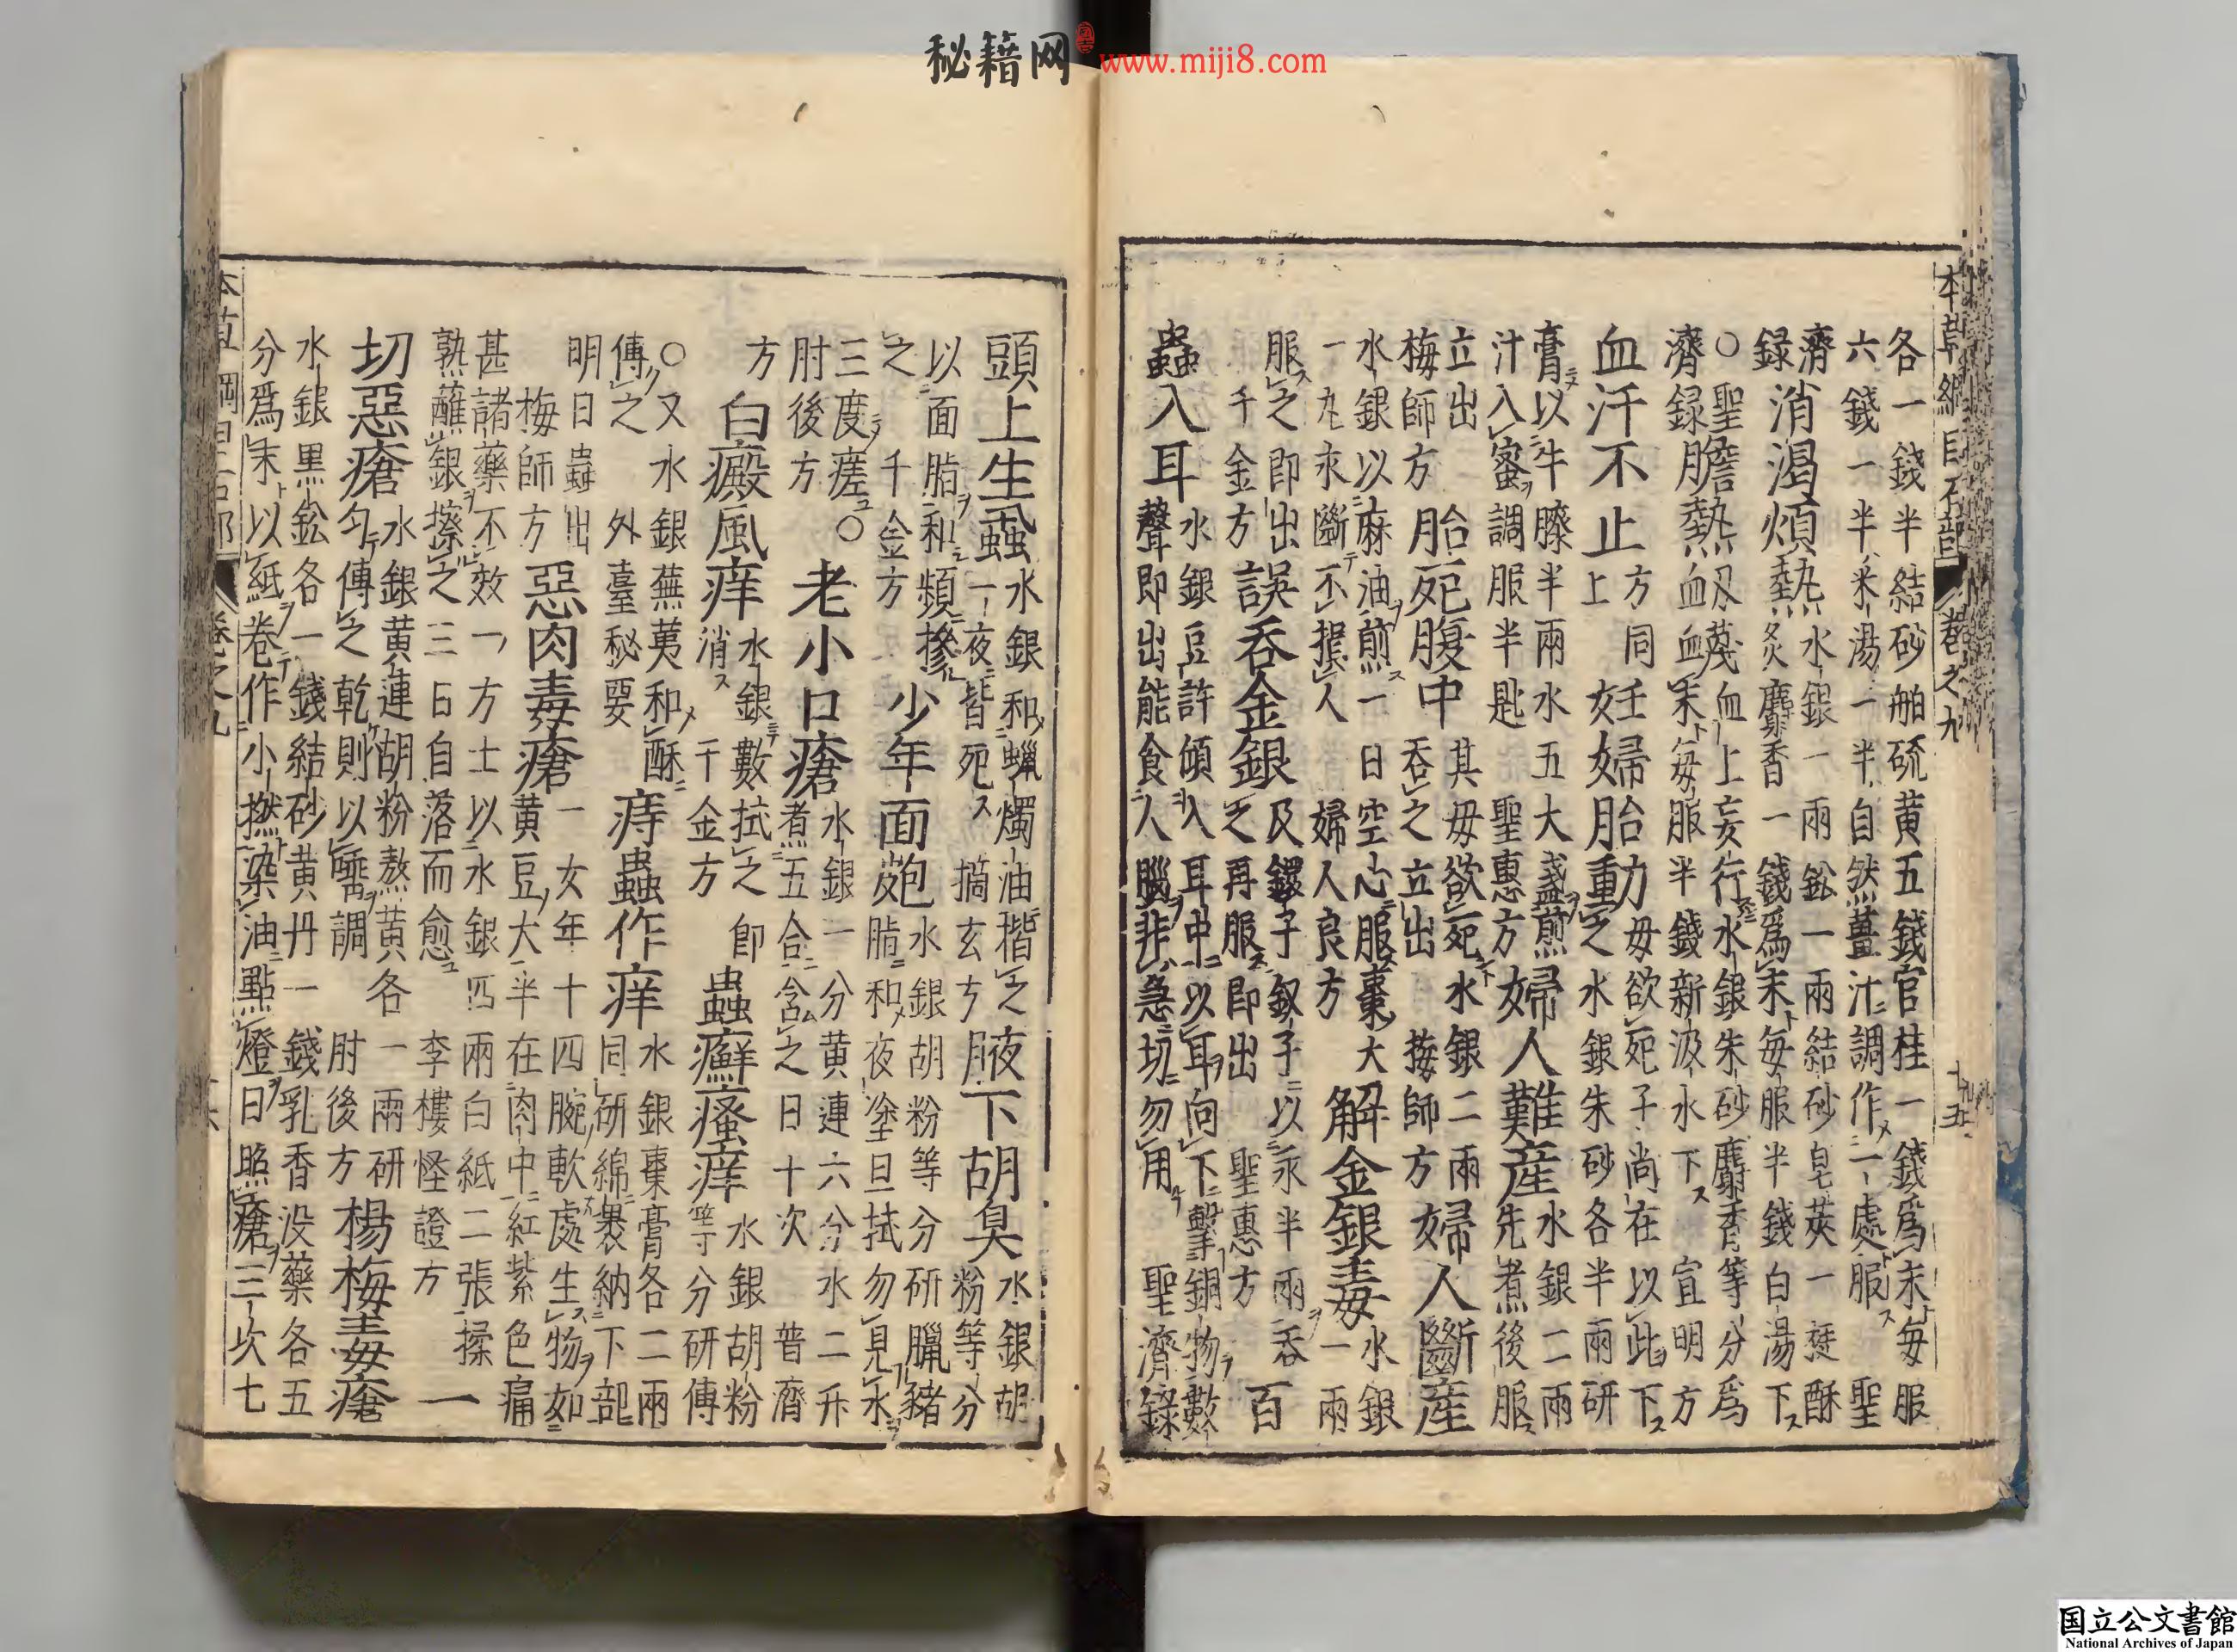 秘籍网 www.miji8.com
本草綱目石部 卷之九 十五
各一錢半結砂舶硫黄五錢官桂一錢爲末每服
六錢一半米湯一半自然薑汁調作一處服 聖
濟
録
消渴煩熱
水銀一兩鉛一兩結砂皂莢一挺酥
炙麝香一錢爲末每服半錢白湯下
○聖
濟録
膽熱衂衊
血上妄行水銀朱砂麝香等分爲
末每服半錢新汲水下 宣明方
血汗不止
方同
上
妊婦胎動
母欲死子尚在以此下
之水銀朱砂各半兩研
膏以牛膝半兩水五大盞煎
汁入蜜調服半匙 聖惠方
婦人難産
水銀二兩
先煮後服
立出
梅師方
胎死腹中
其母欲死水銀二兩
吞之立出 梅師方
婦人斷産
水銀以麻油煎一日空心服棗大
一丸永斷不損人 婦人良方
解金銀毒
水銀
一兩
服之即出
千金方
誤吞金銀
及鐶子釵子以汞半兩吞
之再服即出 聖惠方
百
蟲入耳
水銀豆許傾入耳中以耳向下擊銅物數
聲即出能食人腦非急切勿用 聖濟録
頭上生蝨
水銀和蠟燭油揩之
一夜皆死 摘玄方
腋下胡臭
水銀胡
粉等分
以面脂和頻摻
之 千金方
少年面皰
水銀胡粉等分研臘豬
脂和夜塗旦拭勿見水
三度瘥○
肘後方
老小口瘡
水銀一分黄連六分水二升
煮五合含之日十次 普濟
方
白癜風痒
水銀數拭之即
消 千金方
蟲癬瘙痒
水銀胡粉
等分研傅
○又水銀蕪荑和酥
傅之 外臺秘要
痔蟲作痒
水銀棗膏各二兩
同研綿裹納下部
明日蟲出
梅師方
惡肉毒瘡
一女年十四腕軟處生物如
黄豆大半在肉中紅紫色痛
甚諸藥不效一方士以水銀四兩白紙二張揉
熟蘸銀擦之三日自落而愈 李樓怪證方
一
切惡瘡
水銀黄連胡粉熬黄各一兩研
匀傅之乾則以唾調 肘後方
楊梅毒瘡
水銀黑鉛各一錢結砂黄丹一錢乳香没藥各五
分爲末以紙卷作小撚染油點燈日照瘡三次七
本草綱目石部 卷之九
国立公文書館
National Archives of Japan